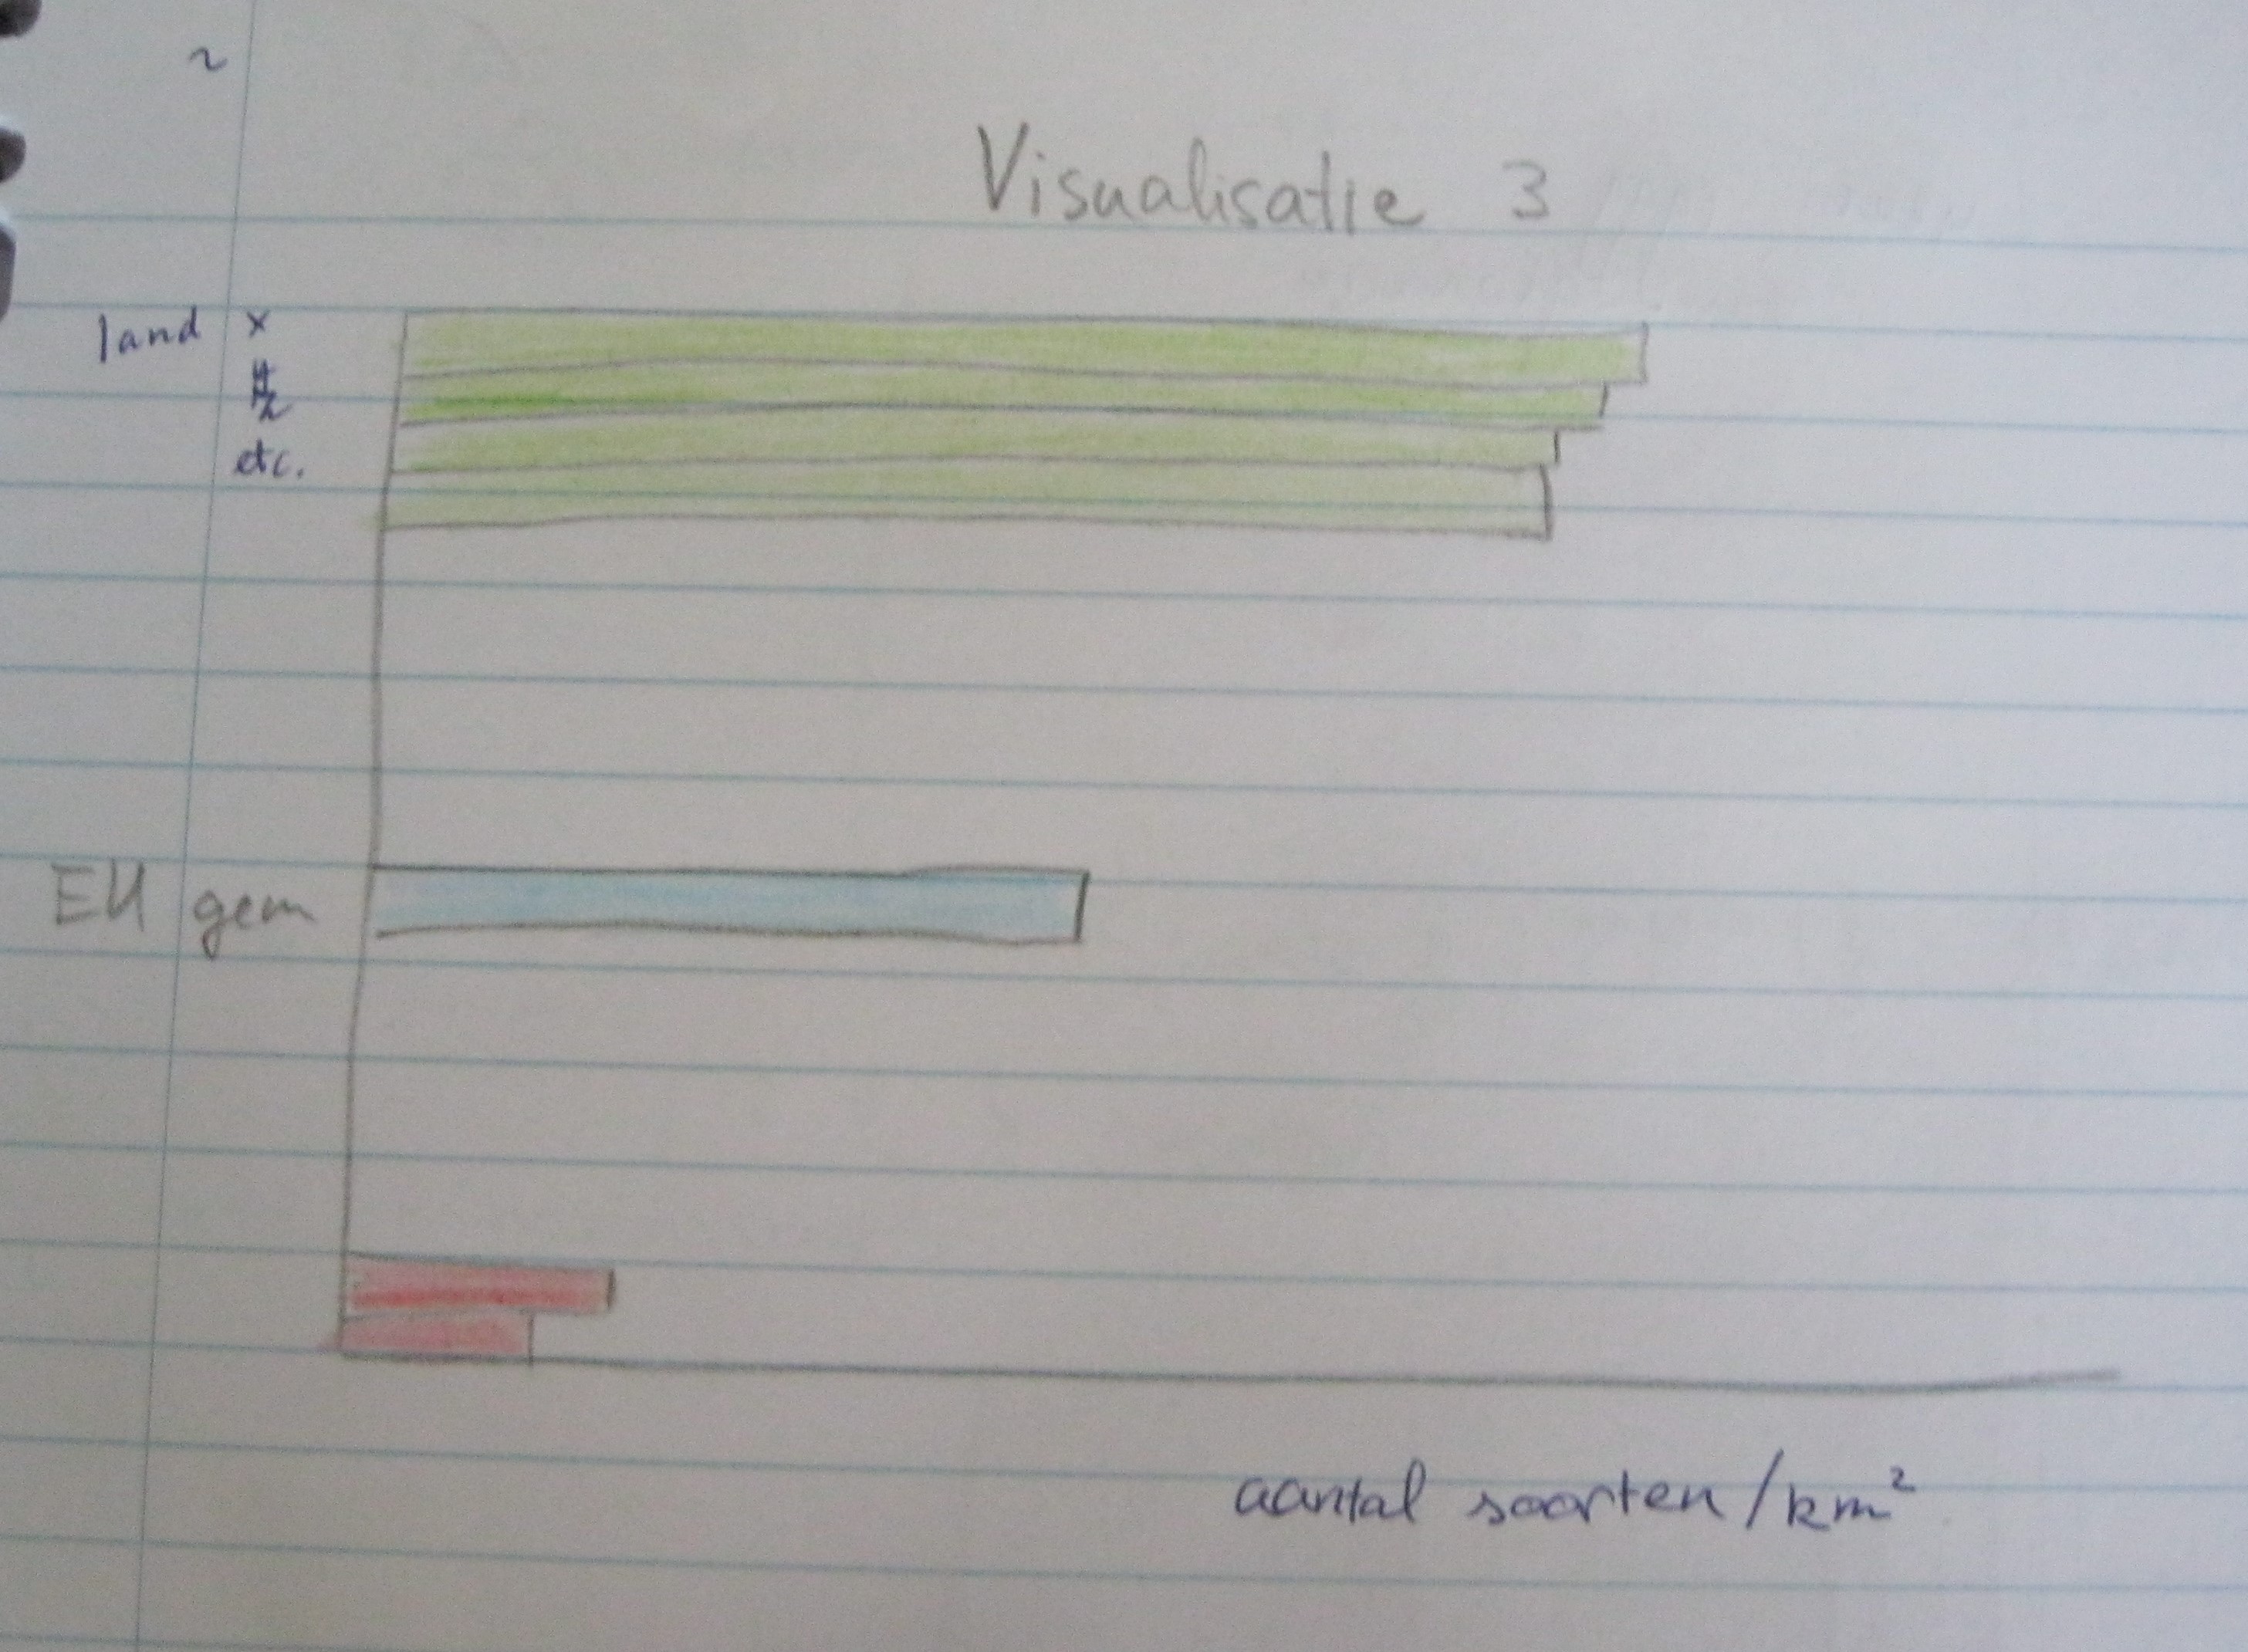 ~
Visualisatie 3
land x
z
etc.
EU gem
aantal soorten/km²